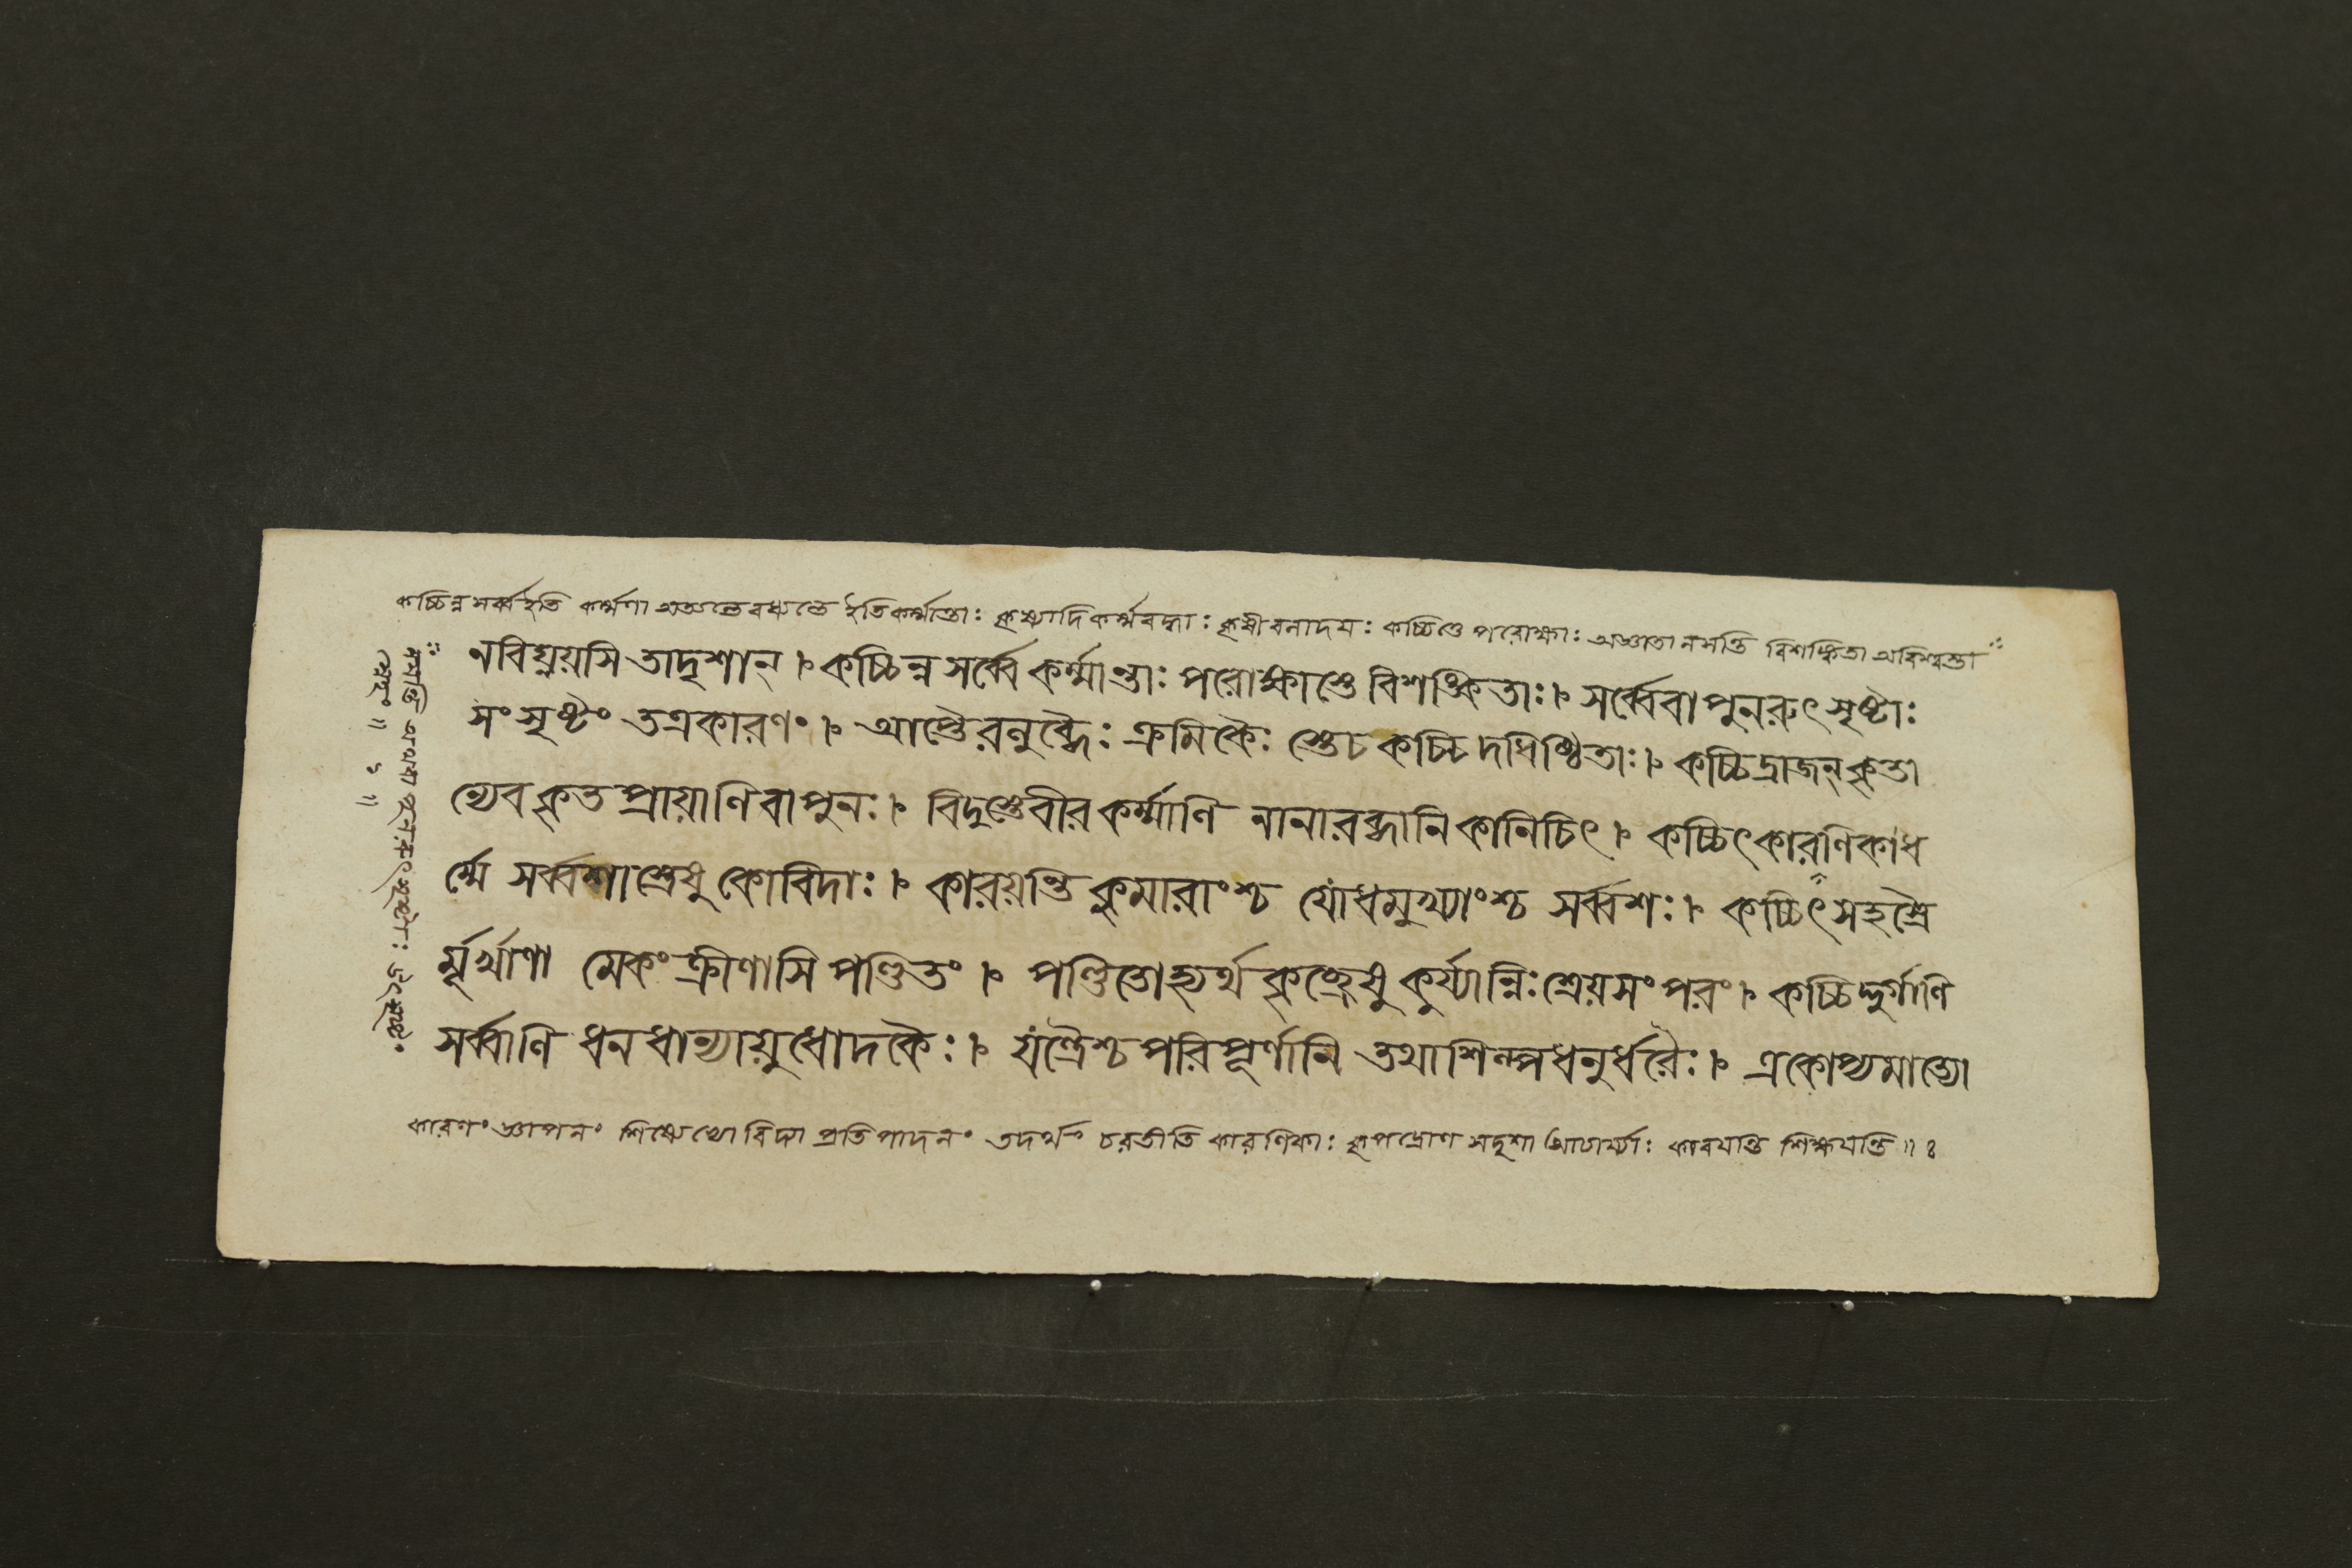 কচ্চিন্ন সর্ব্ব ইতি কর্ম্মণা অত্যন্তে বধ্যন্তে ইতি কর্ম্মান্তাঃ কৃষ্যাদি কর্ম্মবদ্ধাঃ কৃষীবলাদয়ঃ কচ্চিত্তে পরোক্ষাঃ অজ্ঞাতা নসন্তি বিশঙ্কিতা অবিশ্বস্তা
নবিঘ্নয়সি তাদৃশান্ । কচ্চিন্ন সর্ব্বে কর্ম্মান্তাঃ পরোক্ষাস্তে বিশঙ্কিতাঃ । সর্ব্বেবা পুনরুৎসৃষ্টাঃ
সংসৃষ্টং তত্রকারণং । আপ্তৈরলুব্ধৈঃ ক্রমিকৈঃ স্তেচ কচ্চিদধিষ্ঠিতাঃ । কচ্চিদ্রাজন্ কৃতা
ন্যেব কৃতপ্রায়াণি বা পুনঃ । বিদুস্তেবীরকর্ম্মাণি নানারব্ধানি কানিচিৎ । কচ্চিৎকারণিকাধ
র্ম্মে সর্ব্বশাস্ত্রেষু কোবিদাঃ । কারয়ন্তি কুমারাংশ্চ যোধমুখ্যাংশ্চ সর্ব্বশঃ । কচ্চিৎসহস্রৈ
র্ম্মূর্খাণা মেকং ক্রীণাসি পণ্ডিতং । পণ্ডিতোহ্যর্থকৃচ্ছ্রেষু কুর্য্যান্নিঃশ্রেয়সং পরং । কচ্চিদ্দুর্গাণি
সর্ব্বাণি ধনধান্যায়ুধোদকৈঃ । যন্ত্রৈশ্চ পরিপূর্ণানি তথাশিল্পধনুর্ধরৈঃ । একোপ্যমাত্যো
কারণং জ্ঞাপনং শিষ্যেভ্যো বিদ্যা প্রতিপাদনং তদর্থং চরতীতি কারণিকাঃ কৃপদ্রোণ সদৃশা আচার্য্যাঃ কারয়ন্তি শিক্ষয়ন্তি ॥